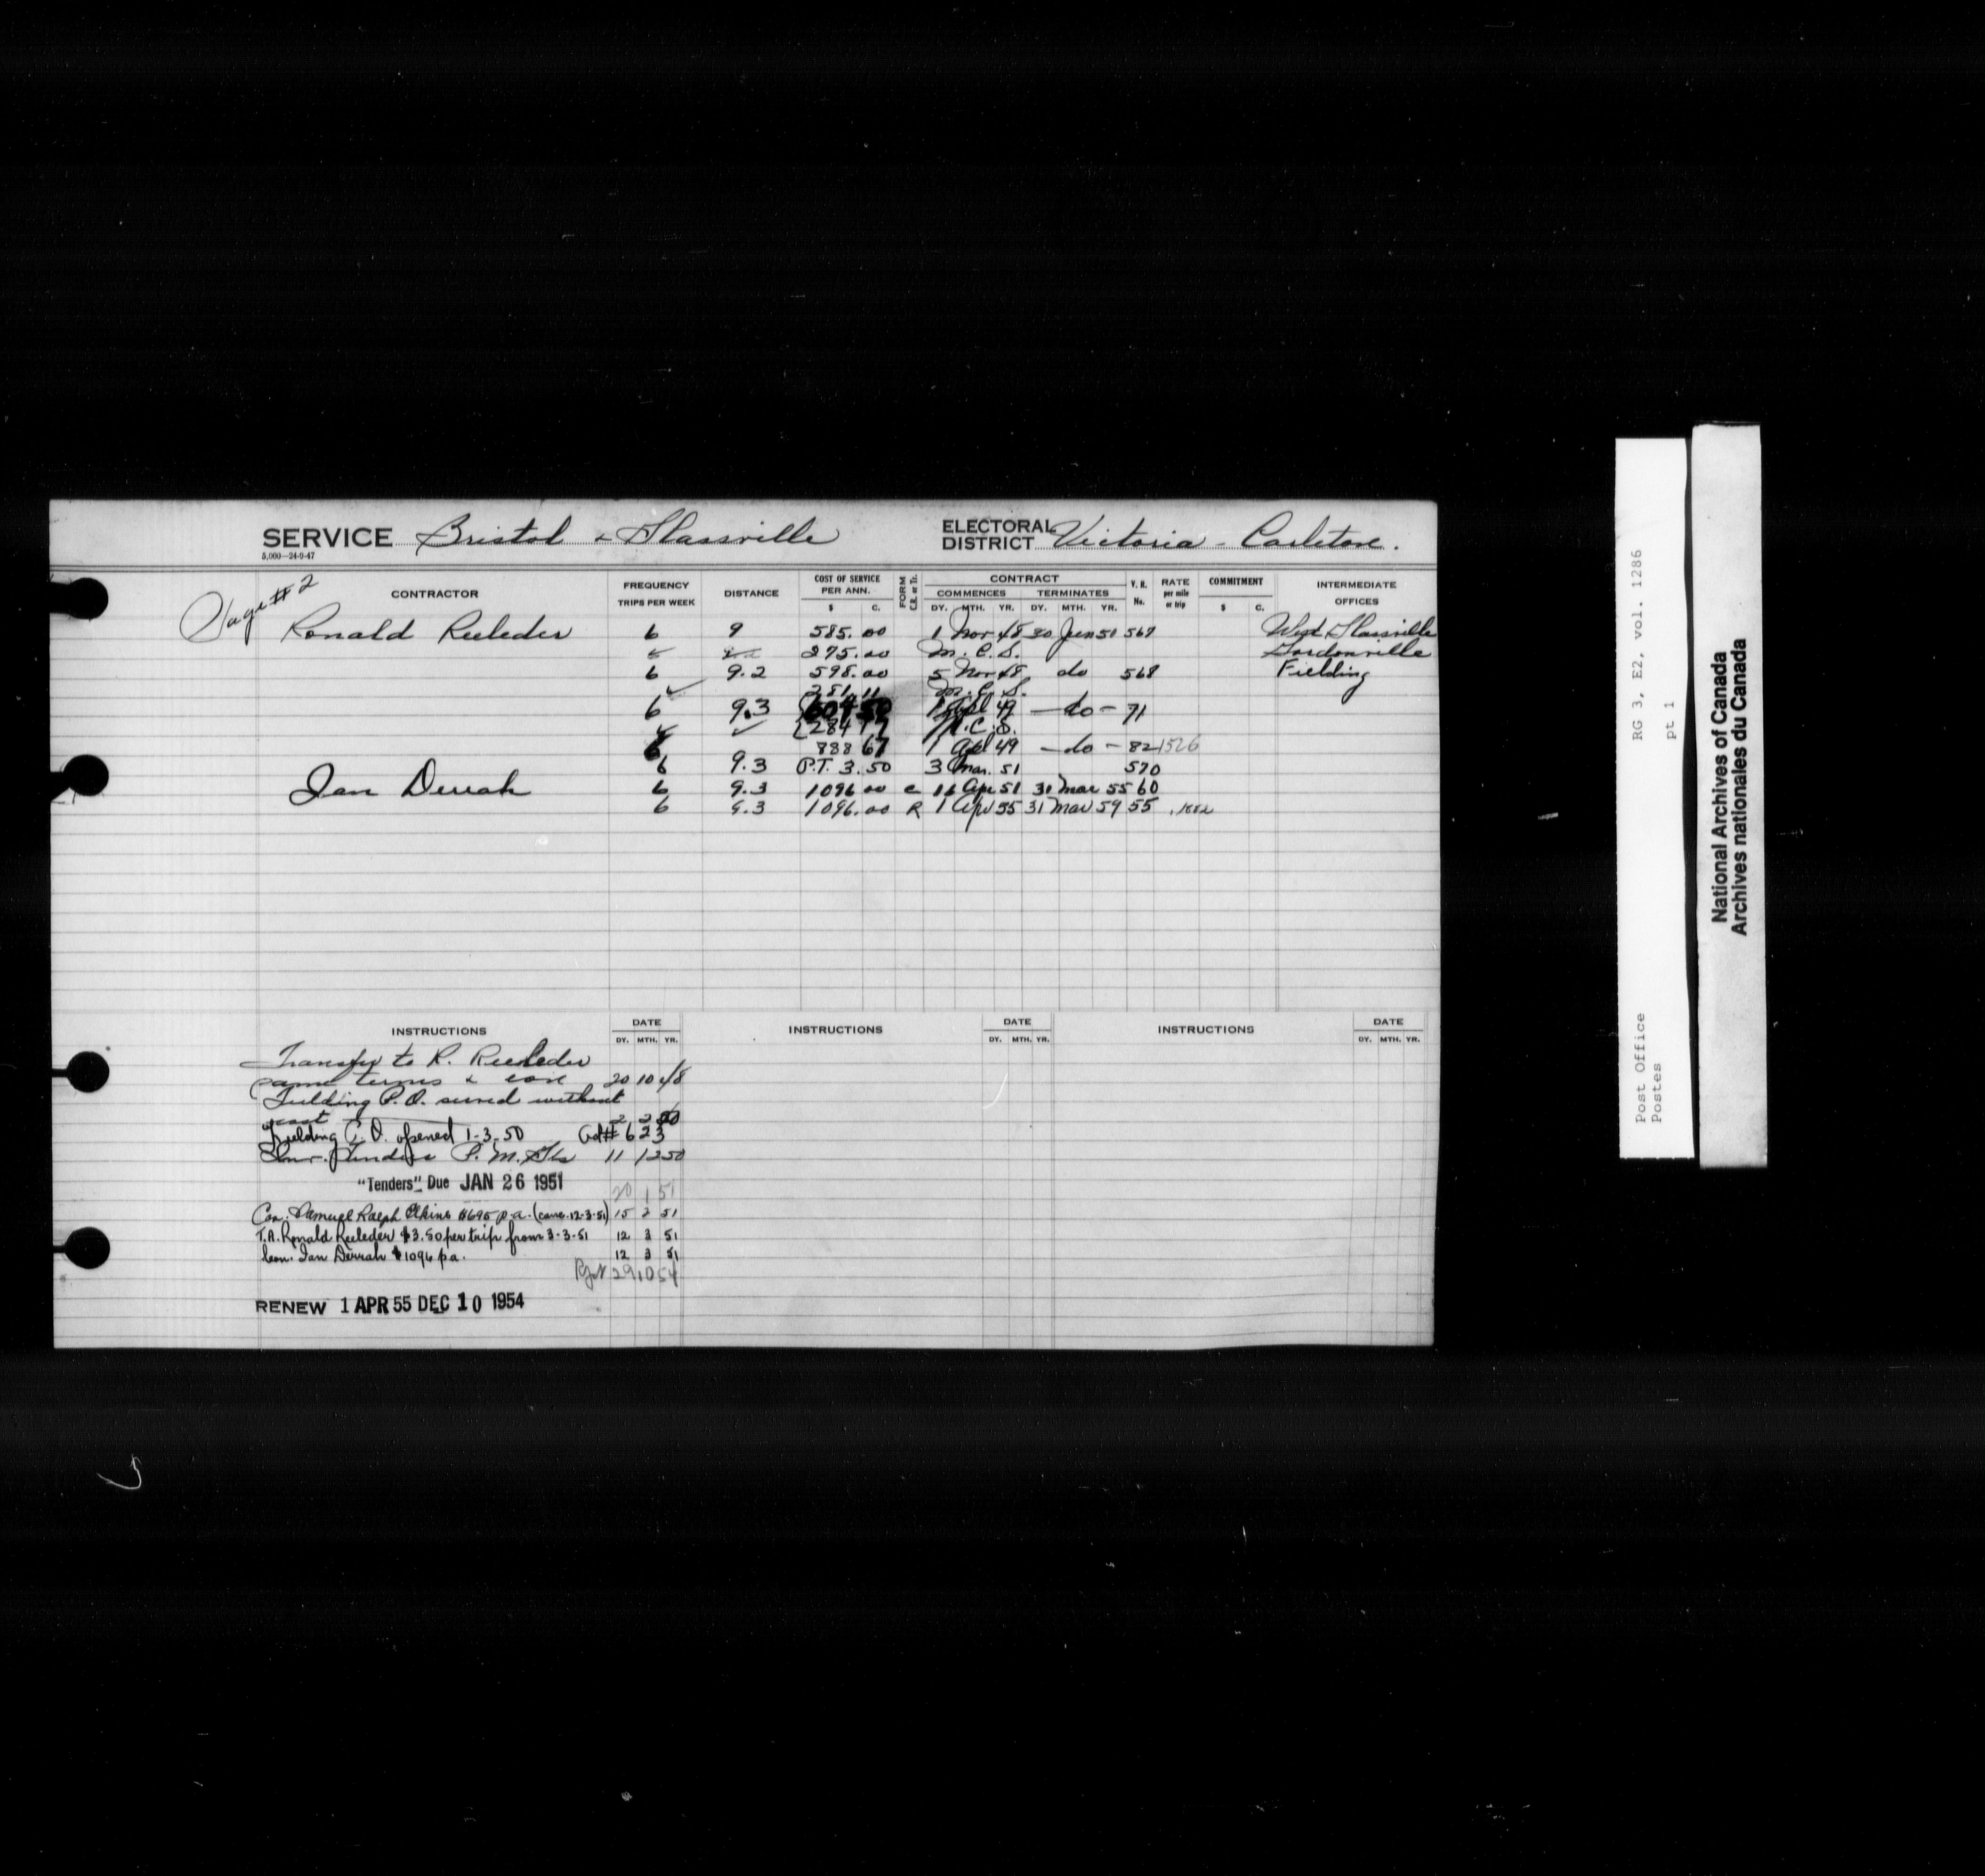 SERVICE Bristol & Glassville ELECTORAL DISTRICT Victoria - Carleton.
5,000—24-9-47
Page #2
CONTRACTOR FREQUENCY TRIPS PER WEEK DISTANCE COST OF SERVICE PER ANN. $ C. FORM C.R. or Tr. CONTRACT COMMENCES DY. MTH. YR. TERMINATES DY. MTH. YR. V. R. No. RATE per mile or trip COMMITMENT $ C. INTERMEDIATE OFFICES
Ronald Reeleder 6 9 585.00 1 Nov 48 30 Jun 51 567 West Glassville
275.00 M.C.S. Gordonville
6 9.2 598.00 5 Nov 48 do 568 Fielding
281.11 M.C.S.
6 9.3 607.50 1 49 - do - 71
284 17
6 888 67 1 Apl 49 - do - 82 1526
6 9.3 P.T. 3.50 3 Mar. 51 570
Ian Derrah 6 9.3 1096 00 c 16 Apr 51 31 Mar 55 60
6 9.3 1096.00 R 1 Apr 55 31 Mar 59 55 .1882
INSTRUCTIONS DATE DY. MTH. YR. INSTRUCTIONS DATE DY. MTH. YR. INSTRUCTIONS DATE DY. MTH. YR.
Transfer to R. Reeleder
same terms & con 20 10 48
Fielding P.O. served without
cost 2 2 50
Fielding P.O. opened 1-3-50 Ad# 6 23
Tenders P.M. Gls 11 12 50
"Tenders" Due JAN 26 1951
20 1 51
Con. Samuel Ralph Elkins $695 p.a. (canc. 12-3-51) 15 2 51
T.A. Ronald Reeleder $3.50 per trip from 3-3-51 12 3 51
Con. Ian Derrah $1096 p.a. 12 3 51
29 10 54
RENEW 1 APR 55 DEC 10 1954
RG 3, E2, vol. 1286
pt 1
Post Office
Postes
National Archives of Canada
Archives nationales du Canada